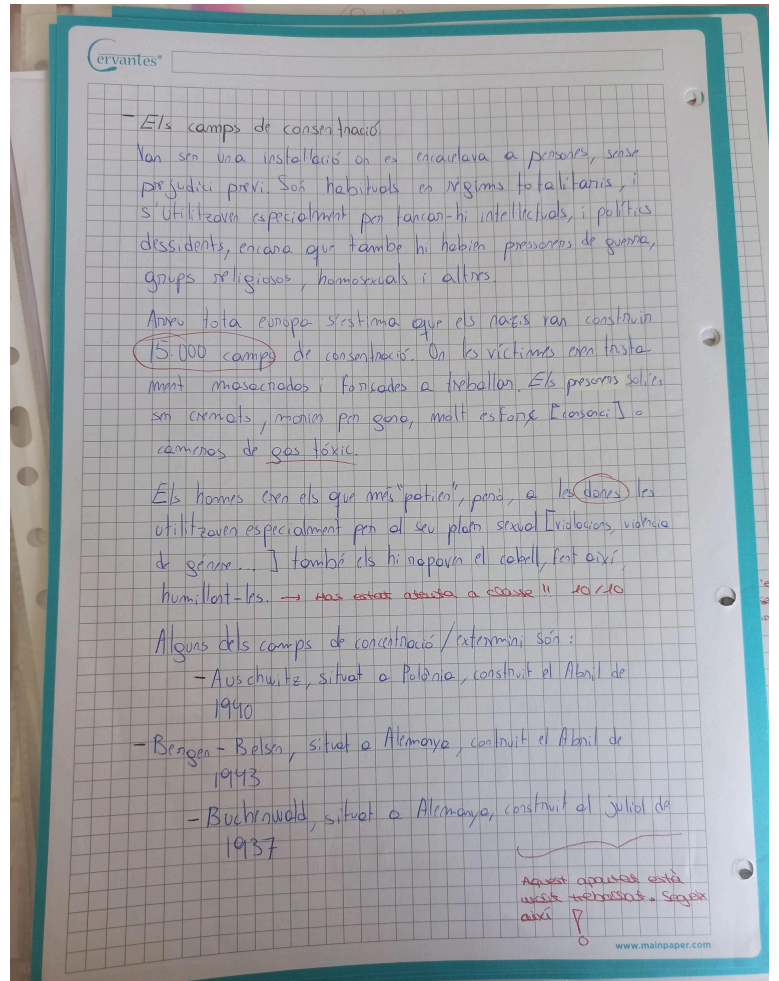 Cervantes®
- Els camps de consentració
Van ser una installació on es encarcelava a persones, sense
prejudici previ. Són habituals en règims totalitaris, i
s'utilitzaven especialment per tancar-hi intellectuals, i polítics
dessidents, encara que tambe hi habien pressoners de guerra,
grups religiosos, homosexuals i altres
Arreu tota europa s'estima que els nazis van construir
15.000 camps de consentració. On les víctimes eren trista-
ment masacrades i forçades a treballar. Els presoners solien
ser cremats, morien per gana, molt esforç [cansanci] o
cameres de gas tòxic.
Els homes eren els que més "patien", però, a les dones les
utilitzaven especialment per al seu plaer sexual [violacions, violència
de gènere...] també els hi rapaven el cabell, fent així,
humillant-les. → Has estat atenta a classe!! 10/10
Alguns dels camps de concentració/extermini són:
- Auschwitz, situat a Polònia, construit el Abril de
1940
- Bergen-Belsen, situat a Alemanya, contruit el Abril de
1943
- Buchenwald, situat a Alemanya, construit al juliol de
1937
Aquest apartat està
treballat. Segeix
així!
www.mainpaper.com